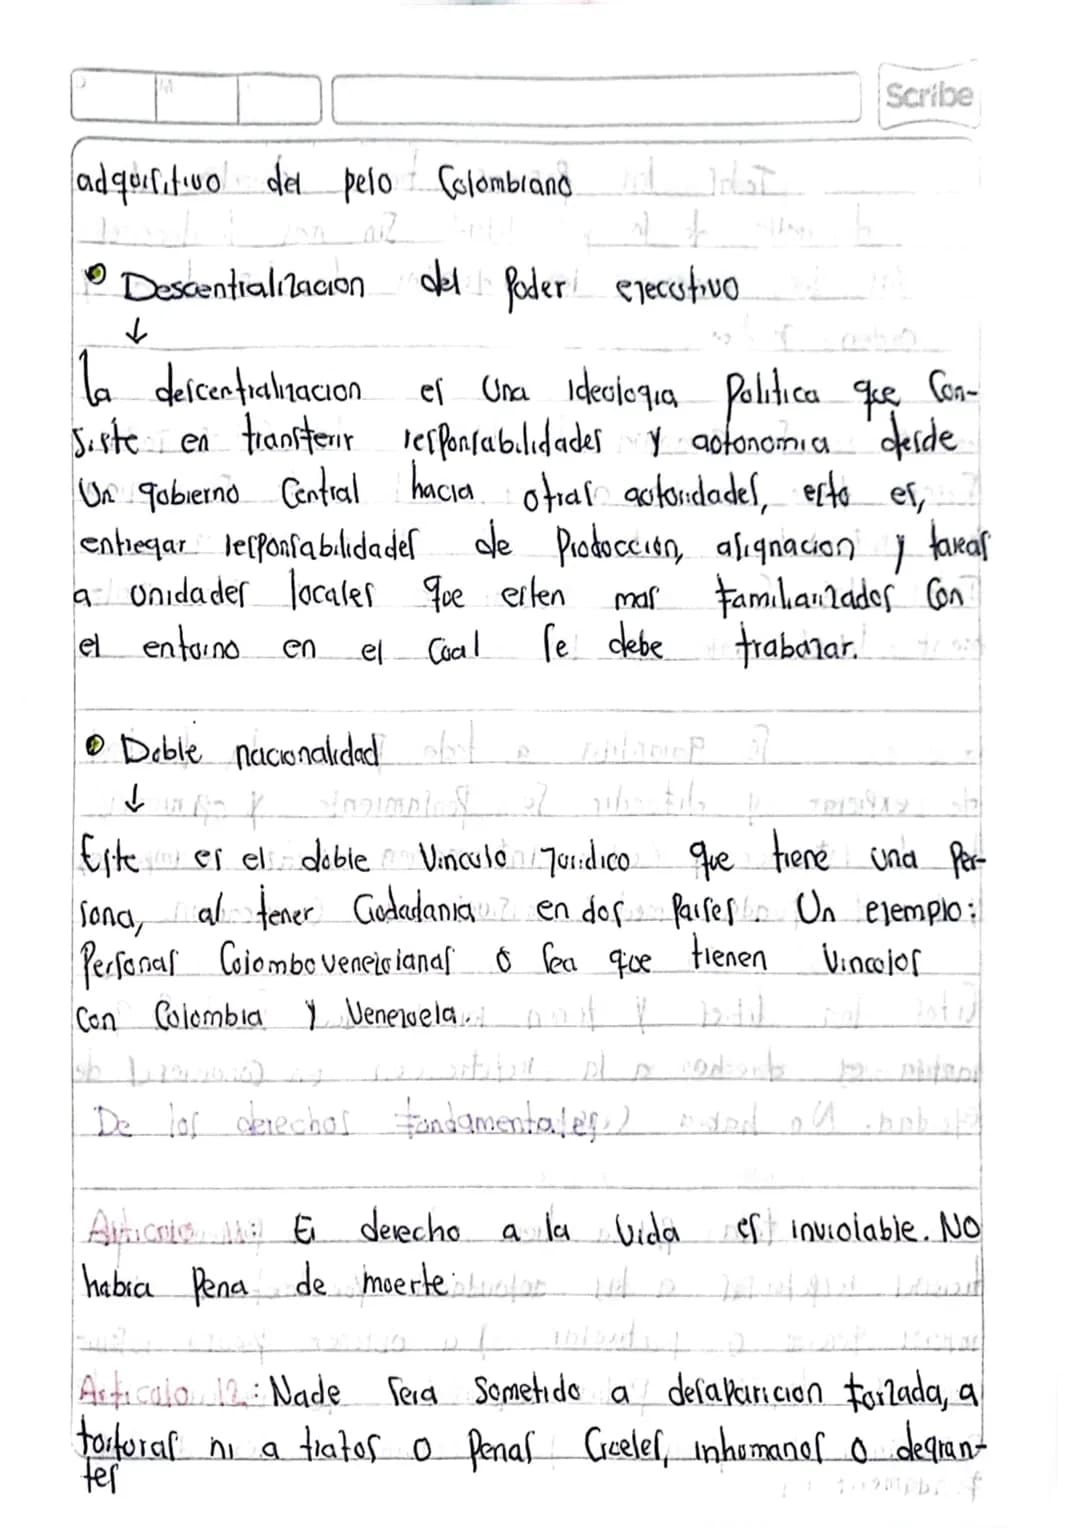 Scribe
adquisitivo del peso Colombiano
Descentralizacion del Poder ejecutivo
↓
La descentralizacion es Una Ideologia Politica que Con-
siste en transferir responsabilidades y autonomia desde
Un gobierno Central hacia otras autoridades, esto es,
entregar responsabilidades de Produccion, asignacion y tareas
a unidades locales que esten mas familiarizados Con
el entorno en el Cual se debe trabajar.
Doble nacionalidad
↓
Este es el doble Vinculo Juridico que tiene una Per-
sona, al tener Ciudadania en dos Paises. Un ejemplo:
Personas Colombovenezolanas o sea que tienen Vinculos
Con Colombia y Venezuela.
De los derechos fundamentales
Articulo 11: El derecho a la Vida es inviolable. NO
habra Pena de muerte.
Articulo 12: Nade sera Sometido a desaparicion forzada, a
torturas ni a tratos o Penas Crueles, inhumanos o degran-
tes